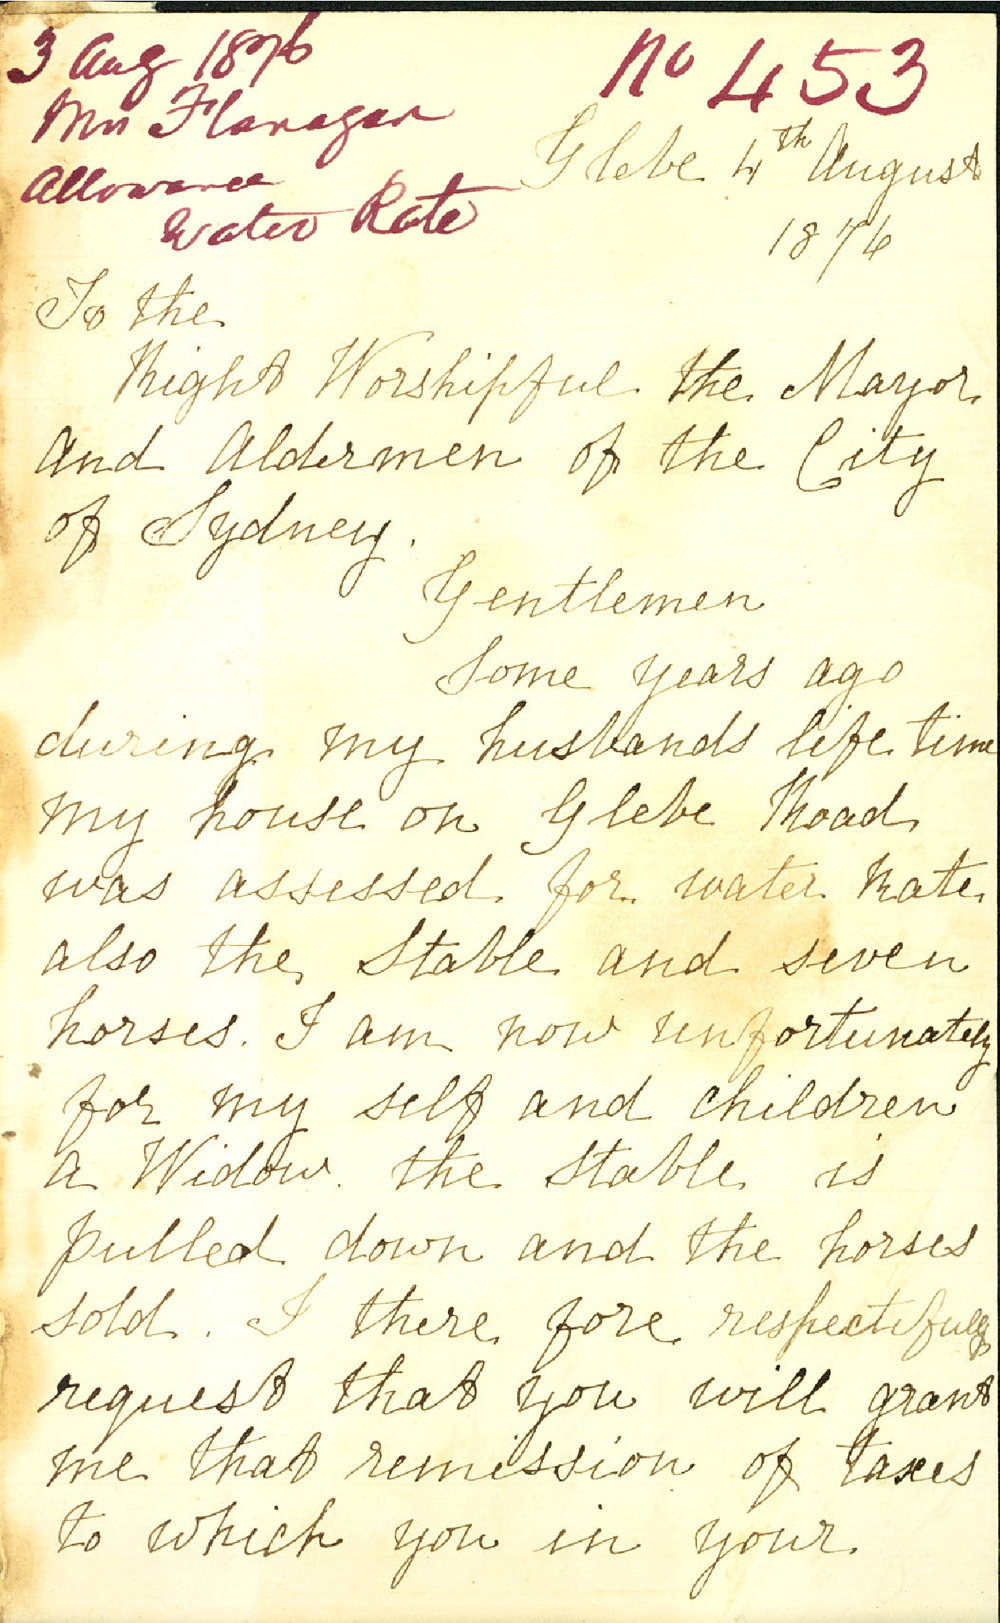 3 Aug 1876
Mrs Flanagan
Allowance
Water Rate
No 453
Glebe 4th August
1876
To the
Right Worshipful the Mayor
and Aldermen of the City
of Sydney.
Gentlemen
Some years ago
during my husbands life time
my house on Glebe Road
was assessed for water Rate
also the Stable and seven
horses. I am now unfortunately
for my self and children
a Widow. the Stable is
pulled down and the horses
sold. I there fore respectfully
request that you will grant
me that remission of taxes
to which you in your